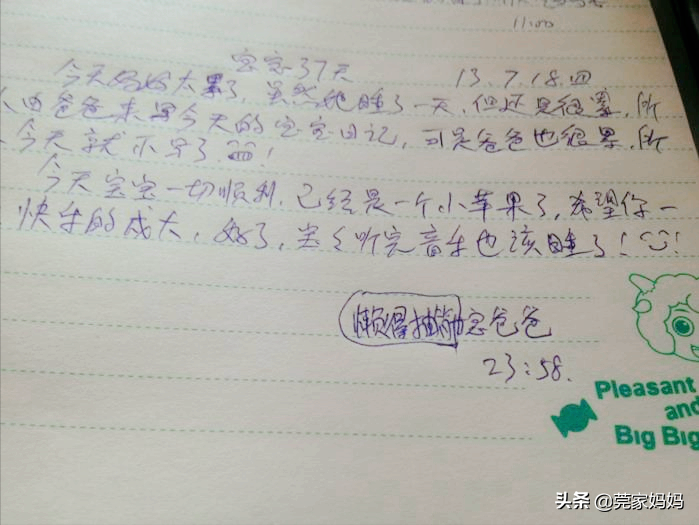 11:00
宝宝37天 13.7.18 四
今天妈妈太累了,虽然她睡了一天,但还是很累,所
由爸爸来写今天的宝宝日记,可是爸爸也很累,所
今天就不写了!
今天宝宝一切顺利,已经是一个小苹果了,希望你一
快乐的成大,好了,宝宝听完音乐也该睡了!
懒得抽筋 宝爸爸
23:58.
Pleasant
and
Big Big
头条 @莞家妈妈